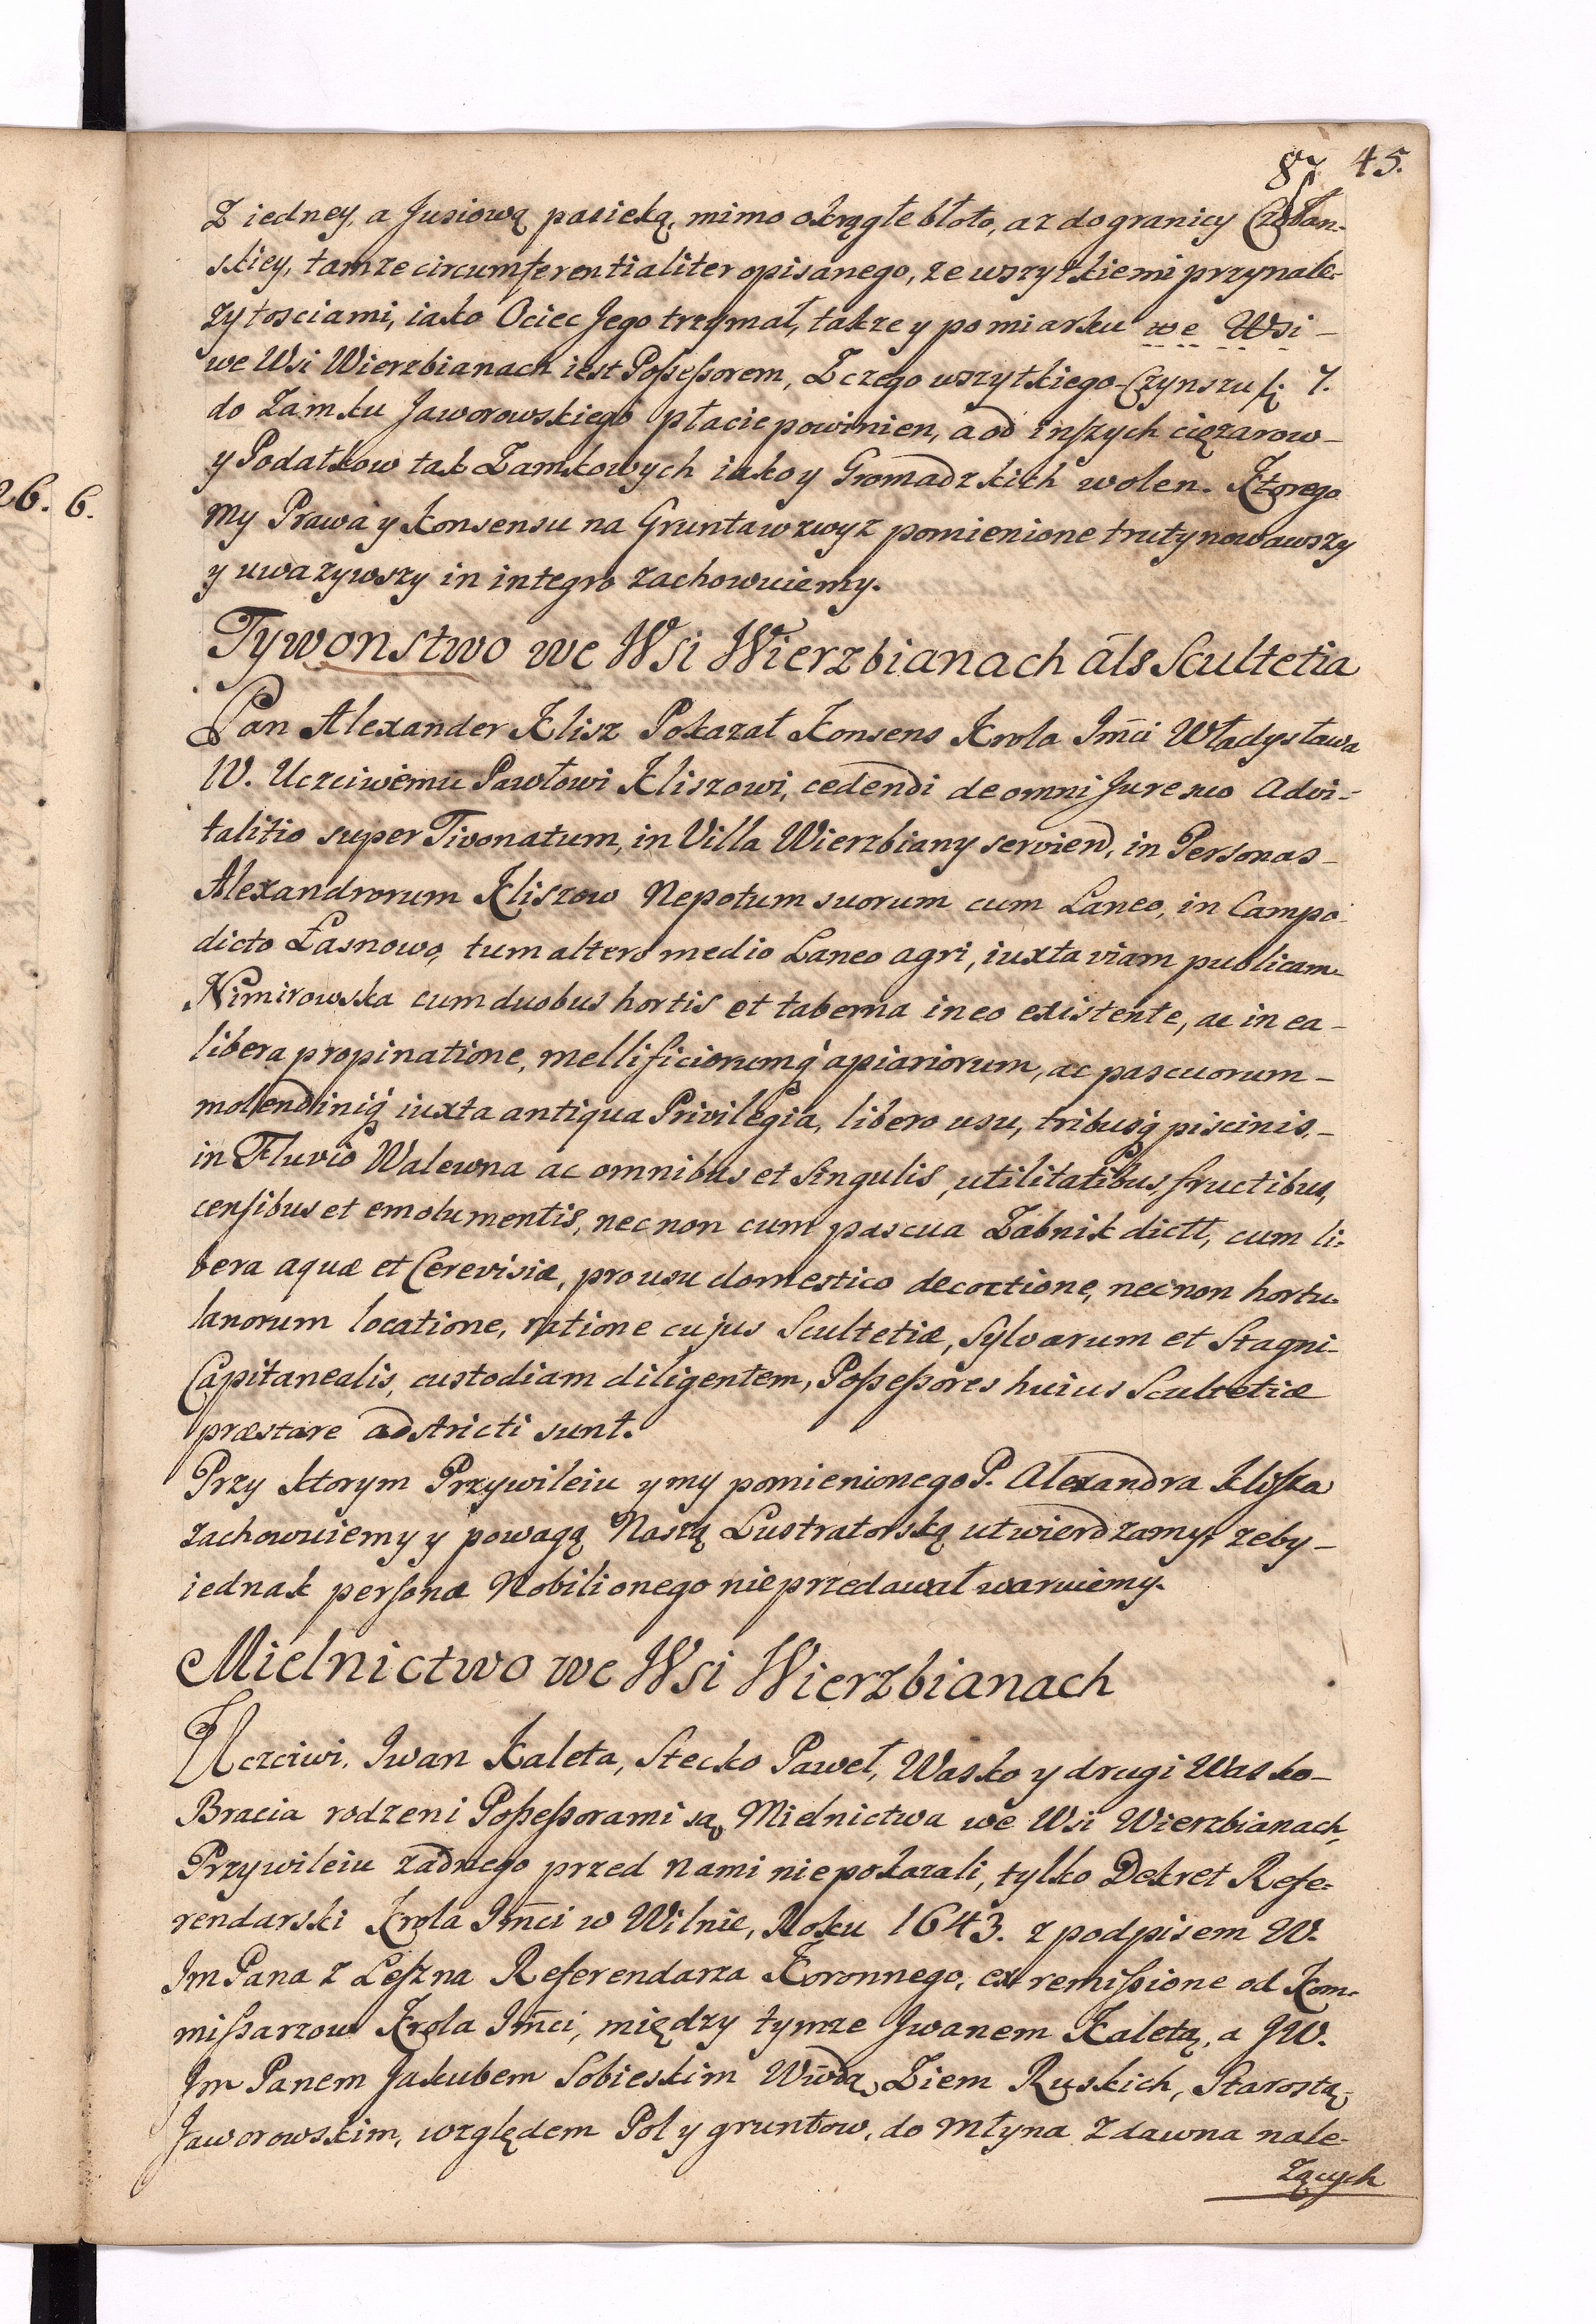 87 45.
Z iedney, a Jusiową pasieką, mimo okrągłe błoto, az do granicy Czołan-
skiey, tamze circumferentialiter opisanego, ze wszytkiemi przynale-
zytosciami, iako Ociec Jego trzymał, takze y pomiarku we Wsi -
we Wsi Wierzbianach iest Possessorem, Z czego wszytkiego Czynszu fl 7.
do Zamku Jaworowskiego płacic powinien, a od inszych cięzarow -
y Podatkow tak Zamkowych iako y Gromadzkich wolen. Ktorego
my Prawa y Konsensu na Grunta wzwyz pomienione trutynowawszy
y uwazywszy in integro zachowuiemy.
Tywonstwo we Wsi Wierzbianach als Scultetia
Pan Alexander Klisz Pokazał Konsens Krola Jmci Władysława
IV. Uczciwemu Pawłowi Kliszowi, cedendi de omni Jure suo Advi-
talitio super Tivonatum, in Villa Wierzbiany serviend, in Personas -
Alexandrorum Kliszow Nepotum suorum cum Laneo, in Campo
dicto Łasnowo, tum altero medio Laneo agri, iuxta viam publicam
Nimirowska cum duobus hortis et taberna in eo existente, ac in ea -
libera propinatione, mellificiorumq apiariorum, ac pascuorum -
molendiniq iuxta antiqua Privilegia, libero usu, tribusq piscinis, -
in Fluvio Walewna ac omnibus et singulis, utilitatibus, fructibus,
censibus et emolumentis, nec non cum pascua Zabnik dictt, cum li-
bera aquæ et Cerevisiæ, pro usu domestico decoctione, nec non hortu-
lanorum locatione, ratione cujus Scultetiæ, Sylvarum et Stagni
Capitanealis, custodiam diligentem, Possessores huius Scultetiæ
præstare adstricti sunt.
Przy ktorym Przywileiu y my pomienionego P. Alexandra Klisza
zachowuiemy y powagą Naszą Lustratorską utwierdzamy, zeby -
iednak personæ Nobili onego nie przedawał waruiemy.
Mielnictwo we Wsi Wierzbianach
Uczciwi, Iwan Kaleta, Stecko Paweł, Wasko y drugi Wasko -
Bracia rodzeni Possessorami są Mielnictwa we Wsi Wierzbianach,
Przywileiu zadnego przed nami nie pokazali, tylko Dekret Refe-
rendarski Krola Jmci w Wilnie, Roku 1643. z podpisem W.
Jm Pana z Leszna Referendarza Koronnego, ex remissione od Kom-
missarzow Krola Jmci, między tymze Jwanem Kaletą, a JW.
Jm Panem Jakubem Sobieskim Wwdą Ziem Ruskich, Starostą
Jaworowskim, względem Pol y gruntow, do Młyna Zdawna nale-
Zących
26. 6.